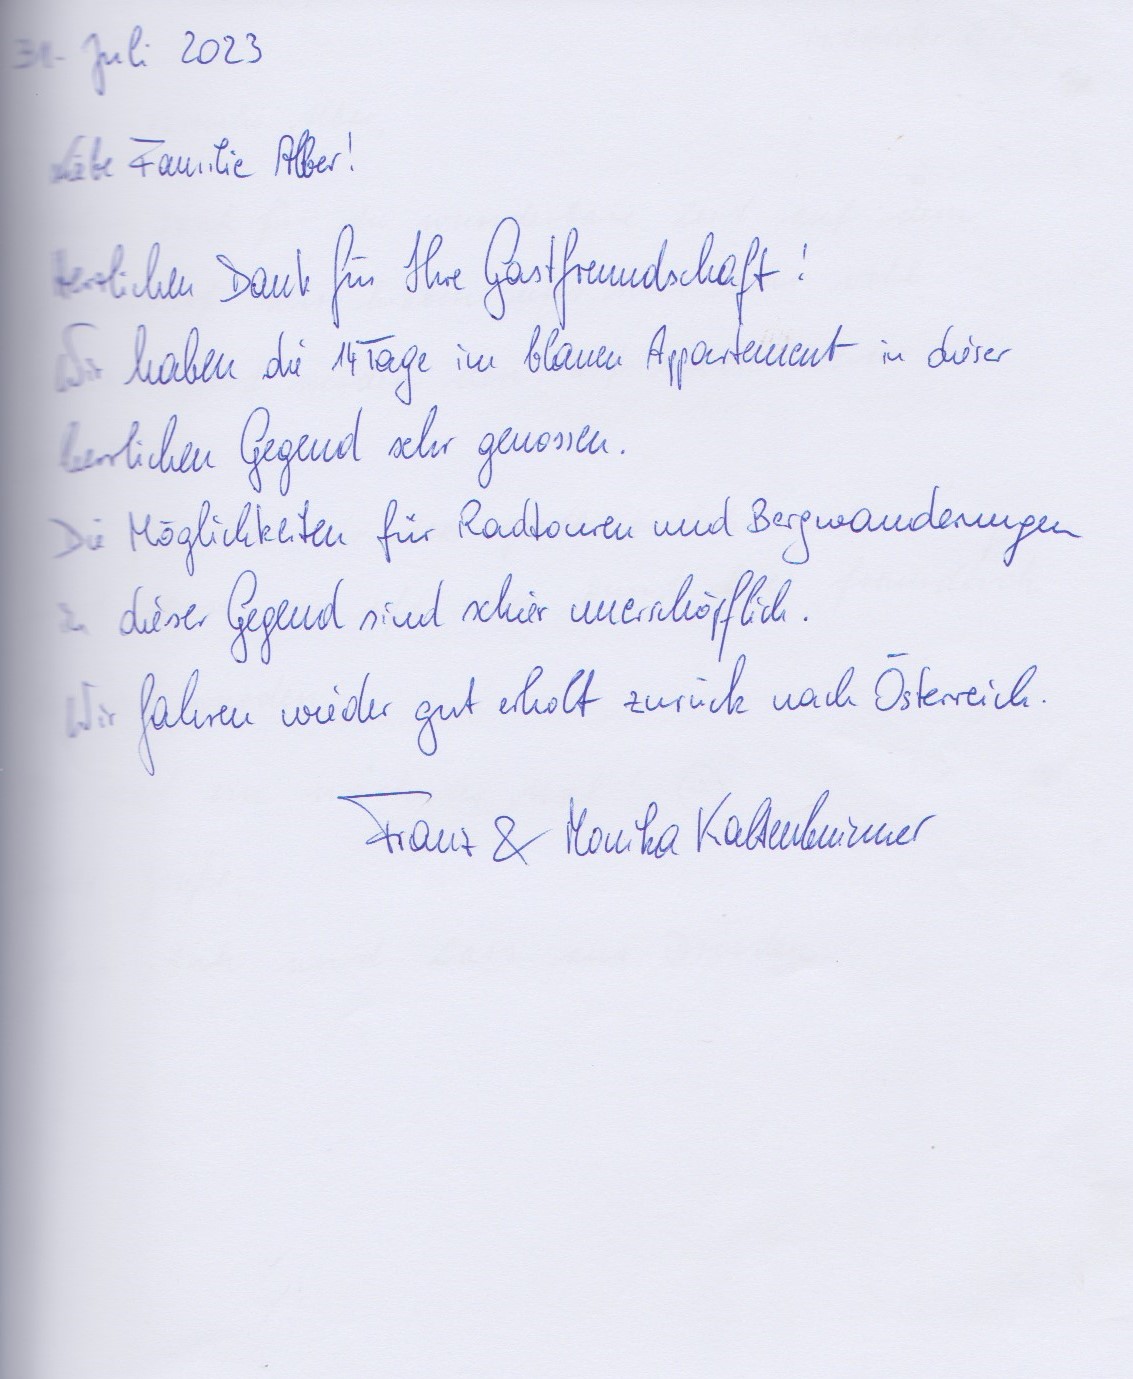 31. Juli 2023
Liebe Familie Alber!
Herzlichen Dank für Ihre Gastfreundschaft!
Wir haben die 14 Tage im blauen Appartement in dieser
herrlichen Gegend sehr genossen.
Die Möglichkeiten für Radtouren und Bergwanderungen
in dieser Gegend sind schier unerschöpflich.
Wir fahren wieder gut erholt zurück nach Österreich.
Franz & Monika Kaltenbrunner